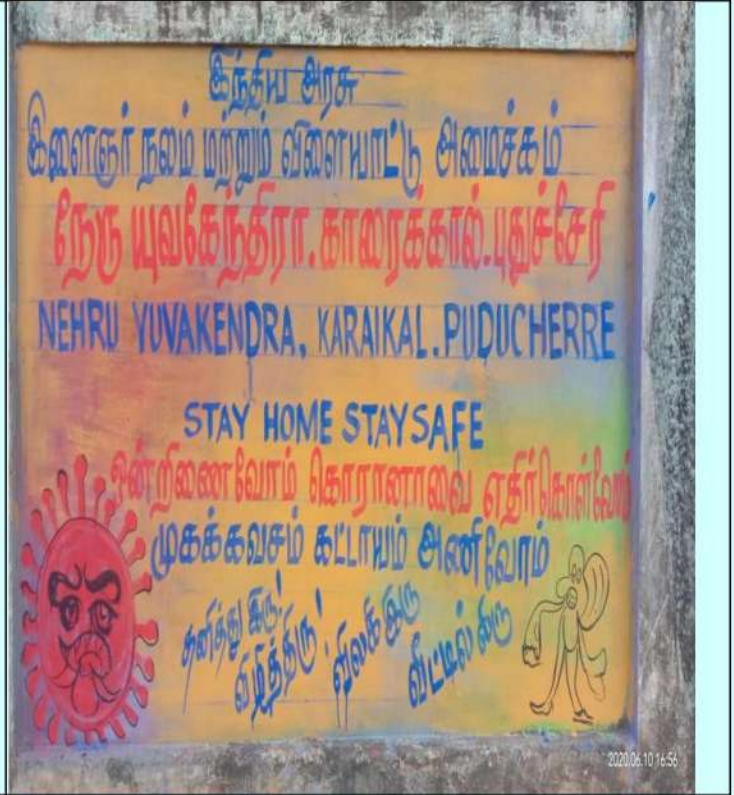 இந்திய அரசு
இளைஞர் நலம் மற்றும் விளையாட்டு அமைச்கம்
நேரு யுவகேந்திரா.காரைக்கால்.புதுச்சேரி
NEHRU YUVAKENDRA, KARAIKAL.PUDUCHERRE
STAY HOME STAY SAFE
ஒன்றிணைவோம் கொரானாவை எதிர்கொள்வோம்
முகக்கவசம் கட்டாயம் அணிவோம்
தனித்து இரு! விழித்திரு! விலகி இரு வீட்டில் இரு
2020.06.10 16:56